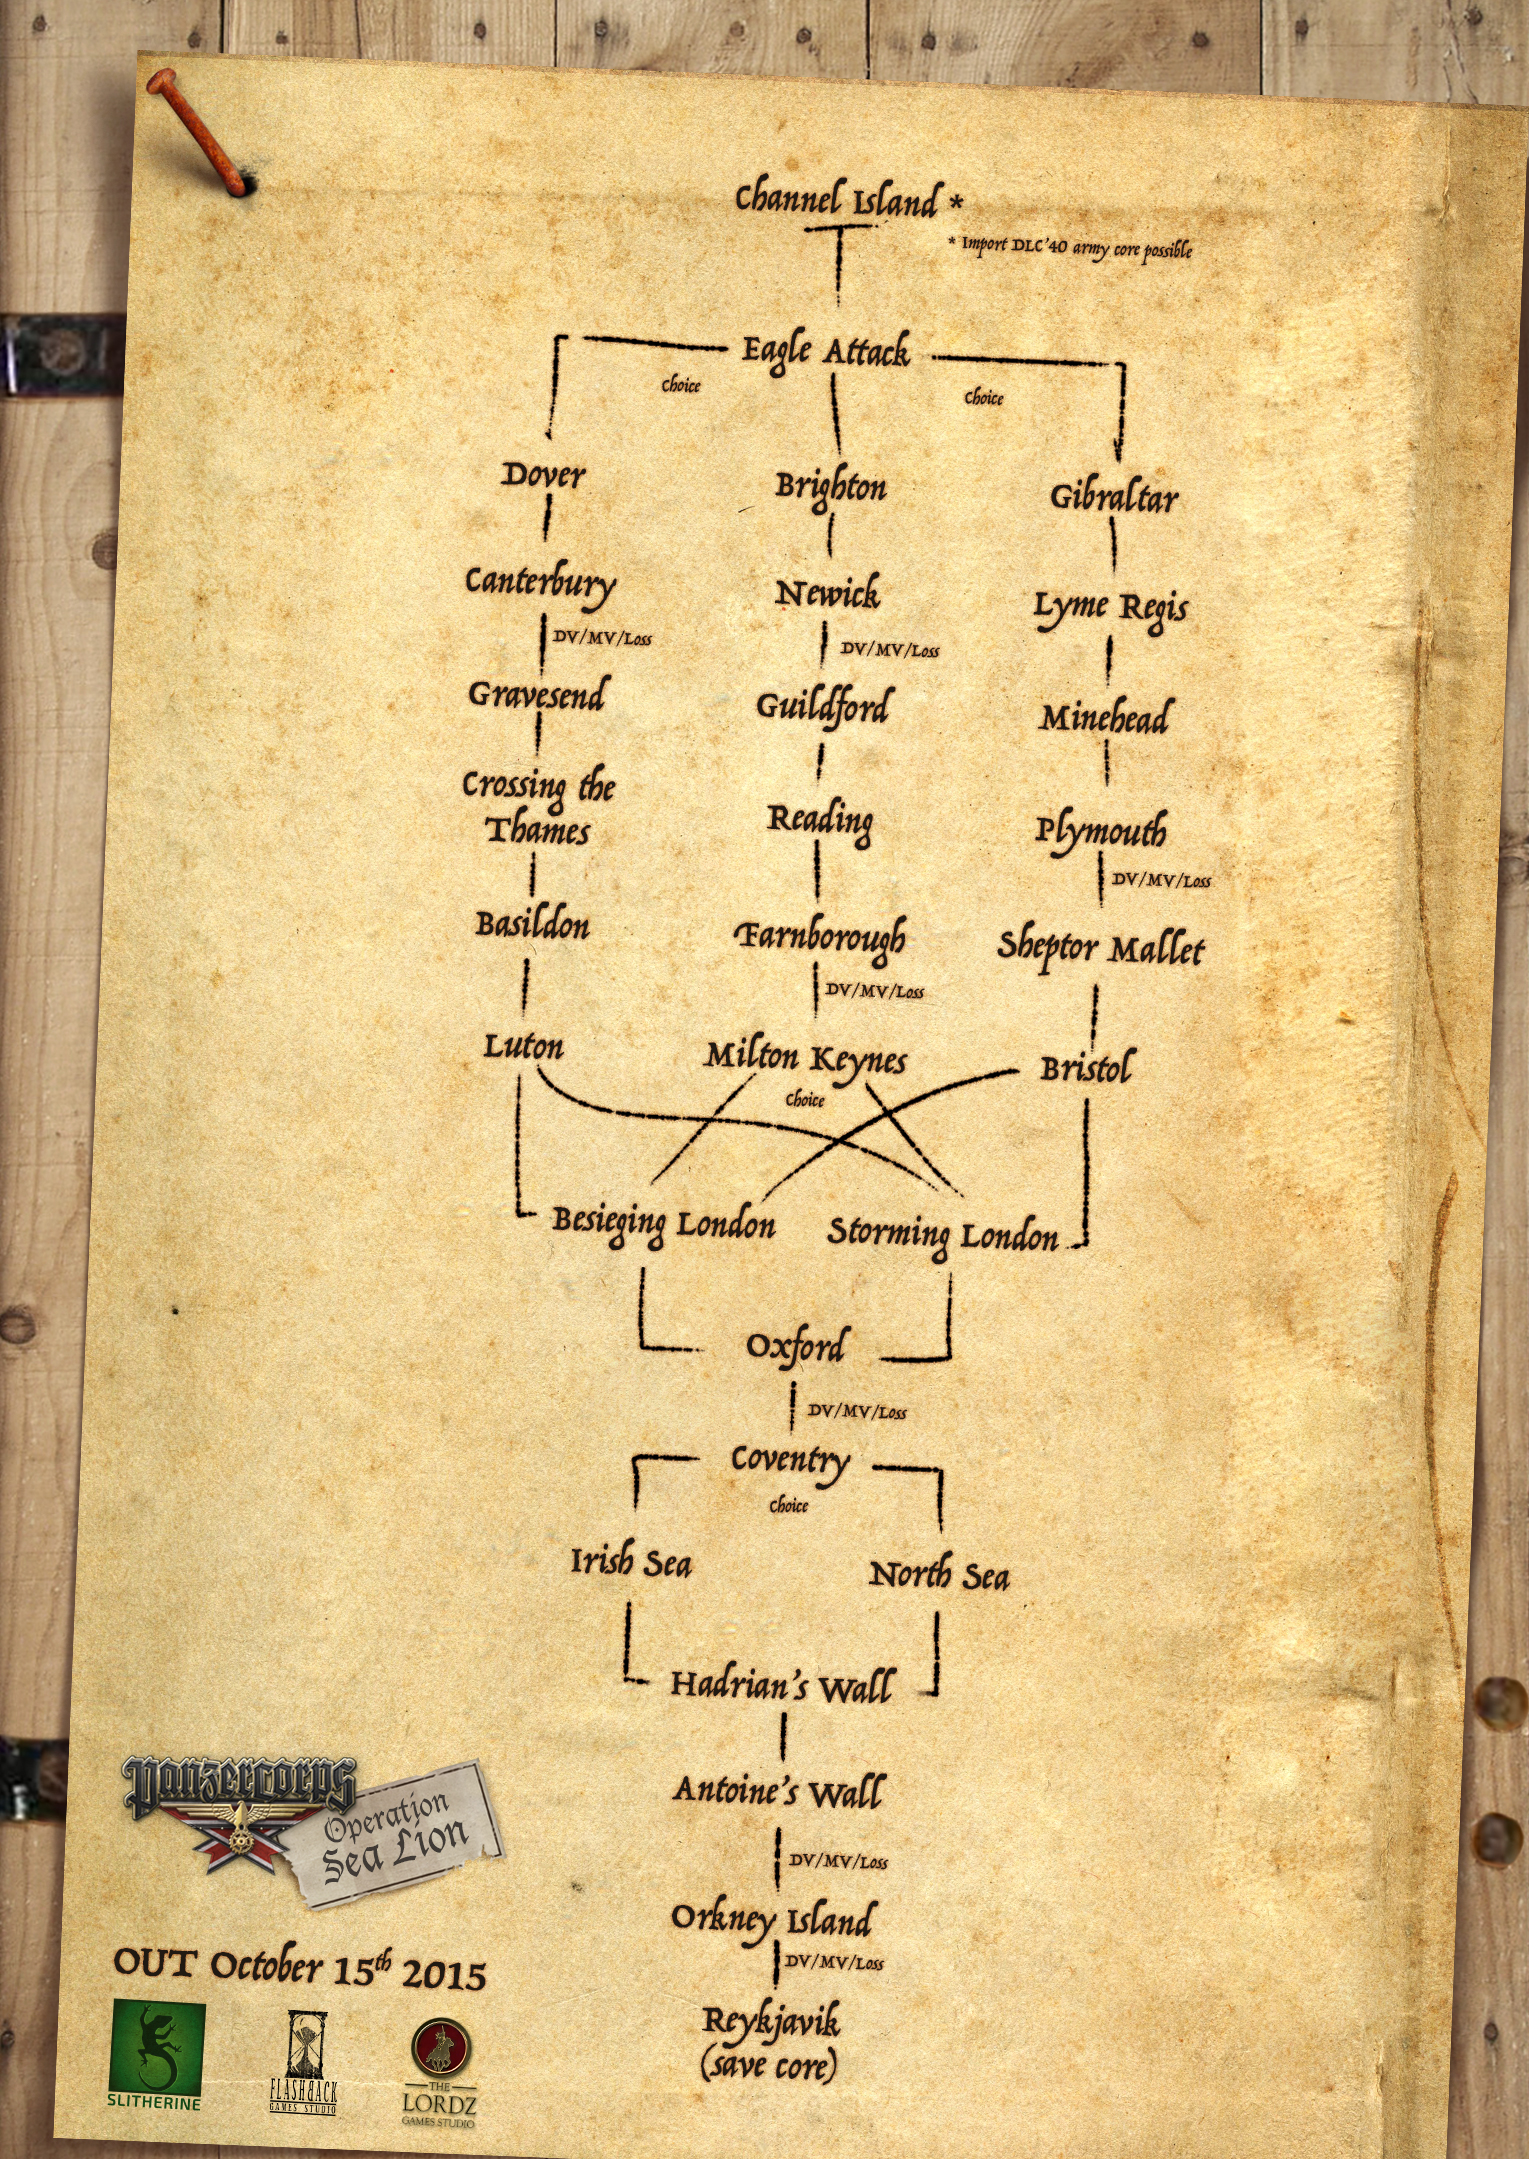 Channel Island *
* Import DLC'40 army core possible
Eagle Attack
choice
choice
Dover
Brighton
Gibraltar
Canterbury
Newick
Lyme Regis
DV/MV/Loss
DV/MV/Loss
Gravesend
Guildford
Minehead
Crossing the
Thames
Reading
Plymouth
DV/MV/Loss
Basildon
Farnborough
Sheptor Mallet
DV/MV/Loss
Luton
Milton Keynes
Bristol
choice
Besieging London
Storming London
Oxford
DV/MV/Loss
Coventry
choice
Irish Sea
North Sea
Hadrian's Wall
Antoine's Wall
DV/MV/Loss
Orkney Island
DV/MV/Loss
Reykjavik
(save core)
Panzercorps
Operation
Sea Lion
OUT October 15th 2015
SLITHERINE
FLASHBACK
GAMES STUDIO
THE
LORDZ
GAMES STUDIO